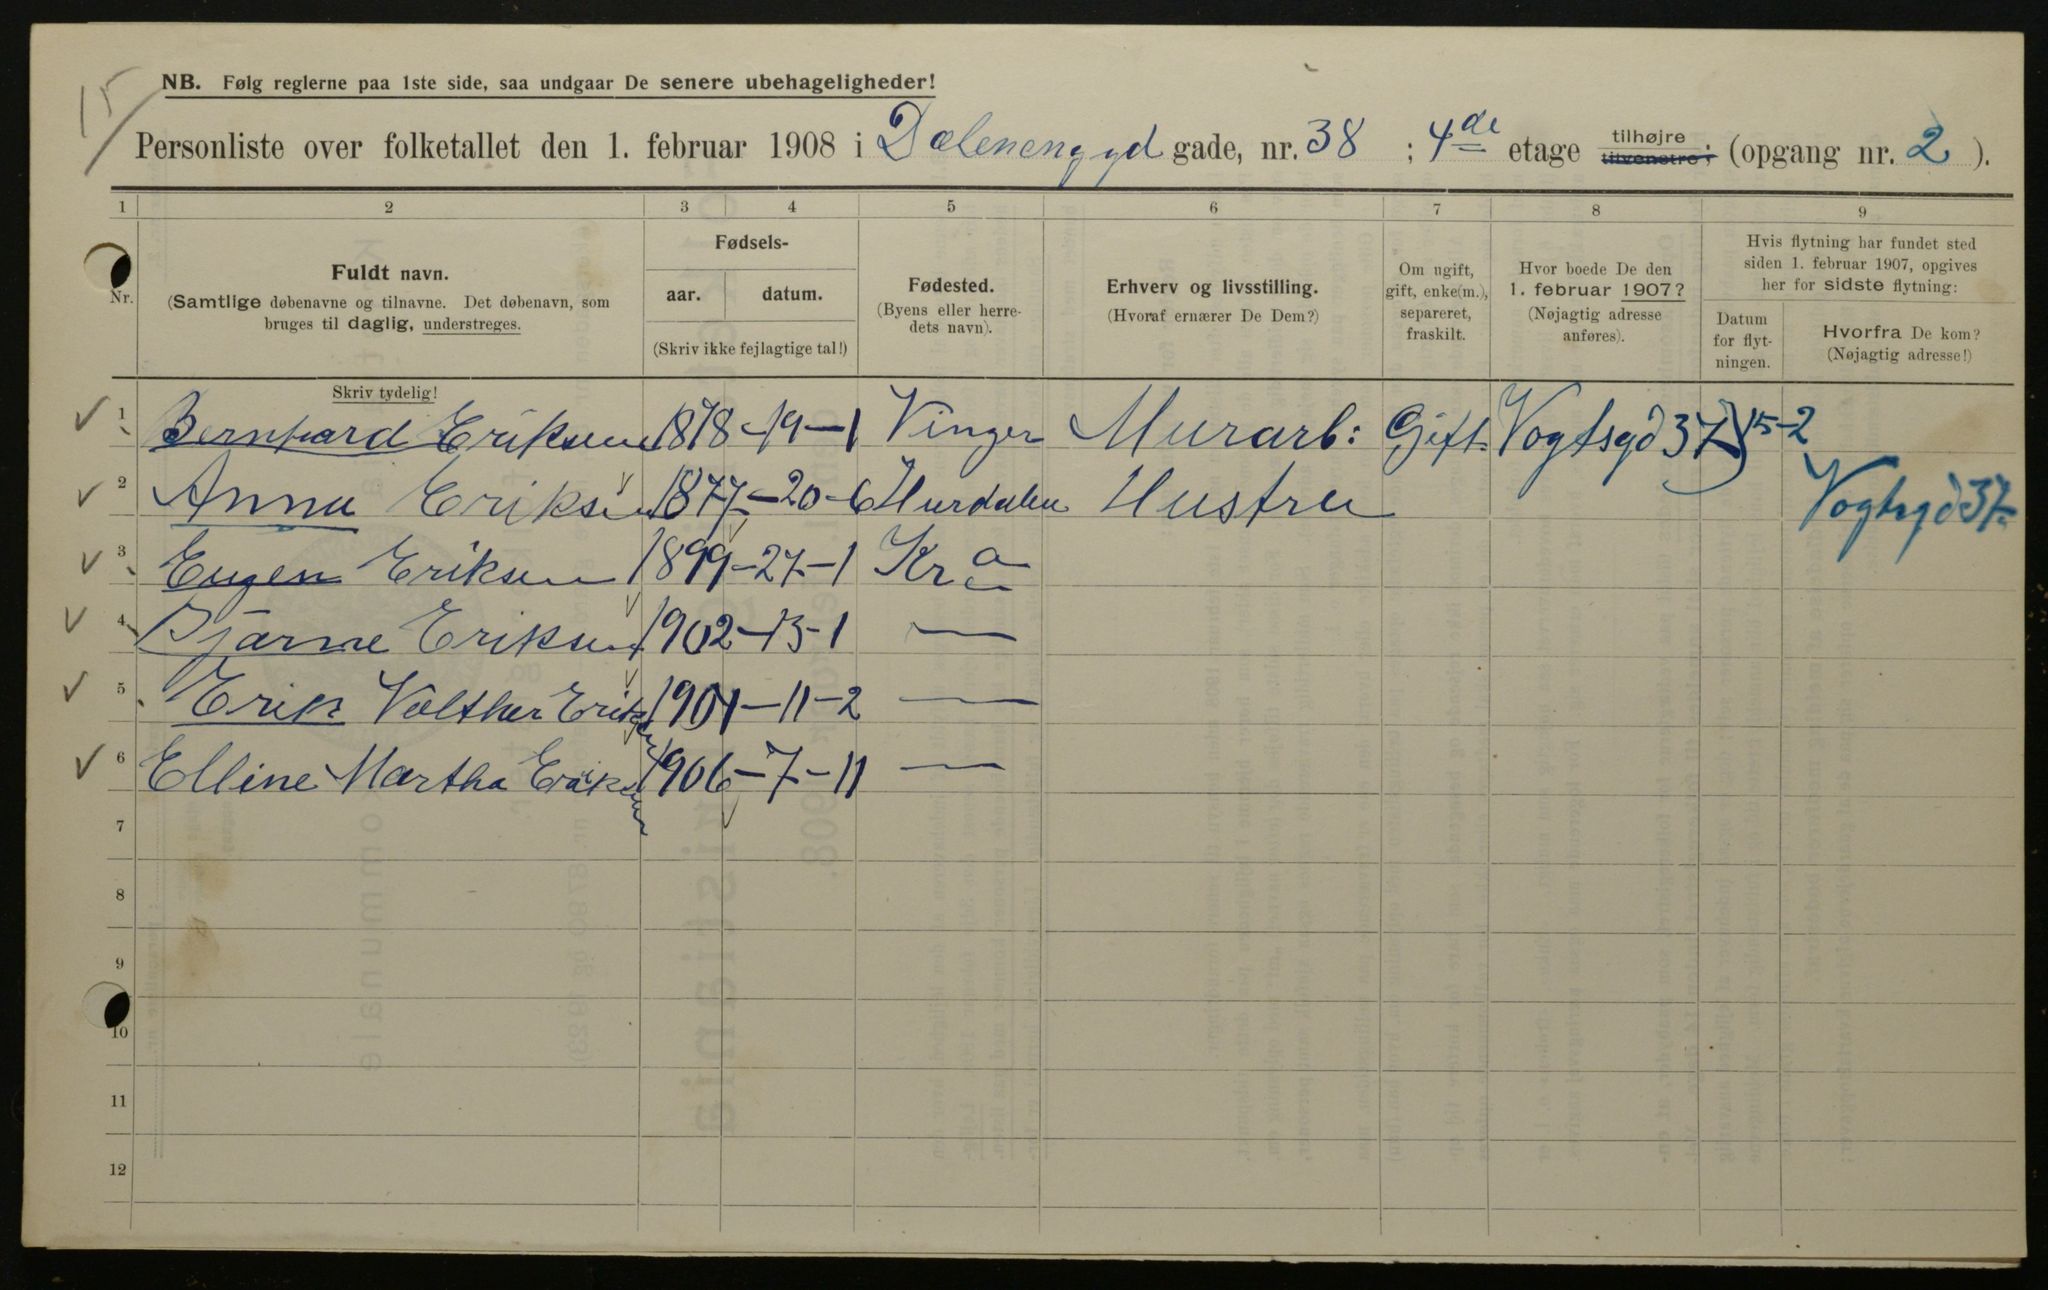 15
NB. Følg reglerne paa 1ste side, saa undgaar De senere ubehageligheder!
Personliste over folketallet den 1. februar 1908 i Dælenengyd gade, nr. 38 ; 4de etage tilhøjre tilvenstre; (opgang nr. 2 ).
1 2 3 4 5 6 7 8 9
Nr. Fuldt navn. (Samtlige døbenavne og tilnavne. Det døbenavn, som bruges til daglig, understreges.
Fødsels- aar. datum. (Skriv ikke fejlagtige tal!)
Fødested. (Byens eller herredets navn).
Erhverv og livsstilling. (Hvoraf ernærer De Dem?)
Om ugift, gift, enke(m.), separeret, fraskilt.
Hvor boede De den 1. februar 1907? (Nøjagtig adresse anføres).
Hvis flytning har fundet sted siden 1. februar 1907, opgives her for sidste flytning:
Datum for flytningen. Hvorfra De kom? (Nøjagtig adresse!)
Skriv tydelig!
1 Bernhard Eriksen 1878-19-1 Vinger Murarb: Gift Vogtsgd 37 15-2
2 Anna Eriksen 1877-20-6 Hurdalen Hustru Vogtsgd 37
3 Eugen Eriksen 1899-27-1 Kra
4 Bjarne Eriksen 1902-13-1 —
5 Erik Valther Eriksen 1904-11-2 —
6 Elline Martha Eriksen 1906-7-11 —
7
8
9
10
11
12